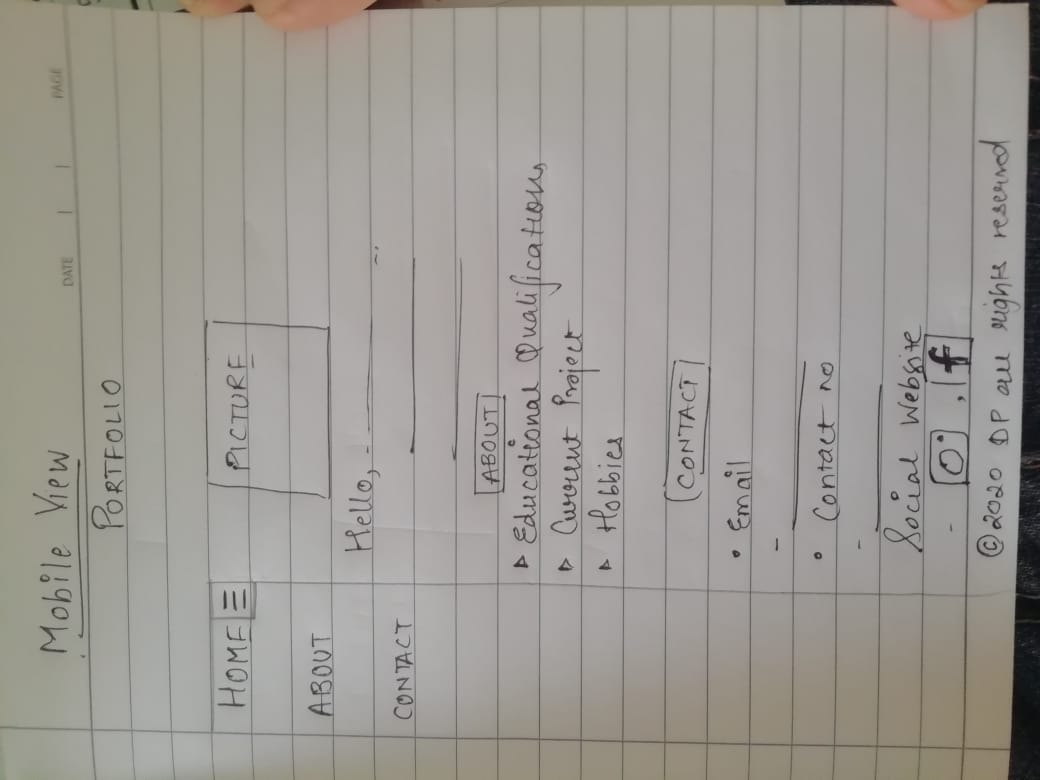 Mobile View
DATE
PAGE
PORTFOLIO
HOME
PICTURE
ABOUT
Hello,
CONTACT
ABOUT
Educational Qualifications
Current Project
Hobbies
CONTACT
• Email
-
• Contact no
-
Social Website
- , f
©2020 DP all rights reserved